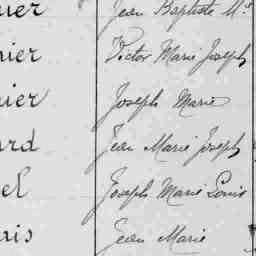 uer Jean Baptiste M.
nier Victor Marie Joseph
uier Joseph Marie
ard Jean Marie Joseph
el Joseph Marie Louis
ais Jean Marie